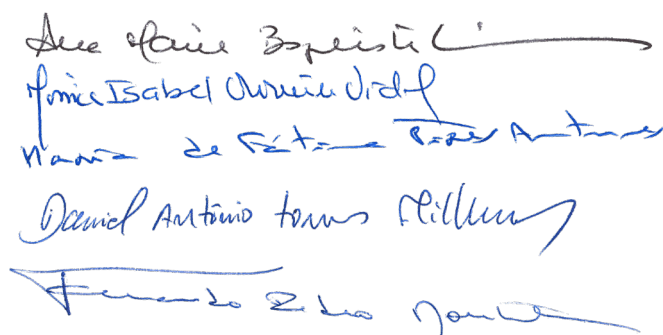 Ana Maria Baptista
Isabel Oliveira Vidal
Maria de Fátima Pires Antunes
Daniel António Torres
Fernando Pedro